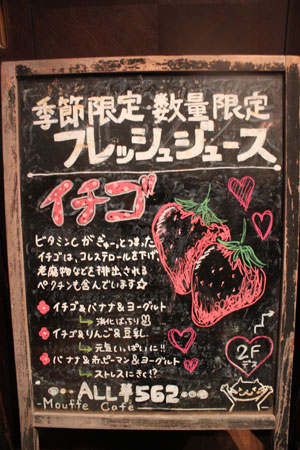 季節限定・数量限定
フレッシュジュース
イチゴ
ビタミンCがぎゅーっとつまった
イチゴは、コレステロールを下げ
老廃物などを排出される
ペクチンも含んでいます☆
イチゴ&バナナ&ヨーグルト
→消化ばっちり
イチゴ&りんご&豆乳
→元気いっぱいに!!
バナナ&赤ピーマン&ヨーグルト
→ストレスにきく!?
2F
デス
ALL ¥562
-Mouffe Café-